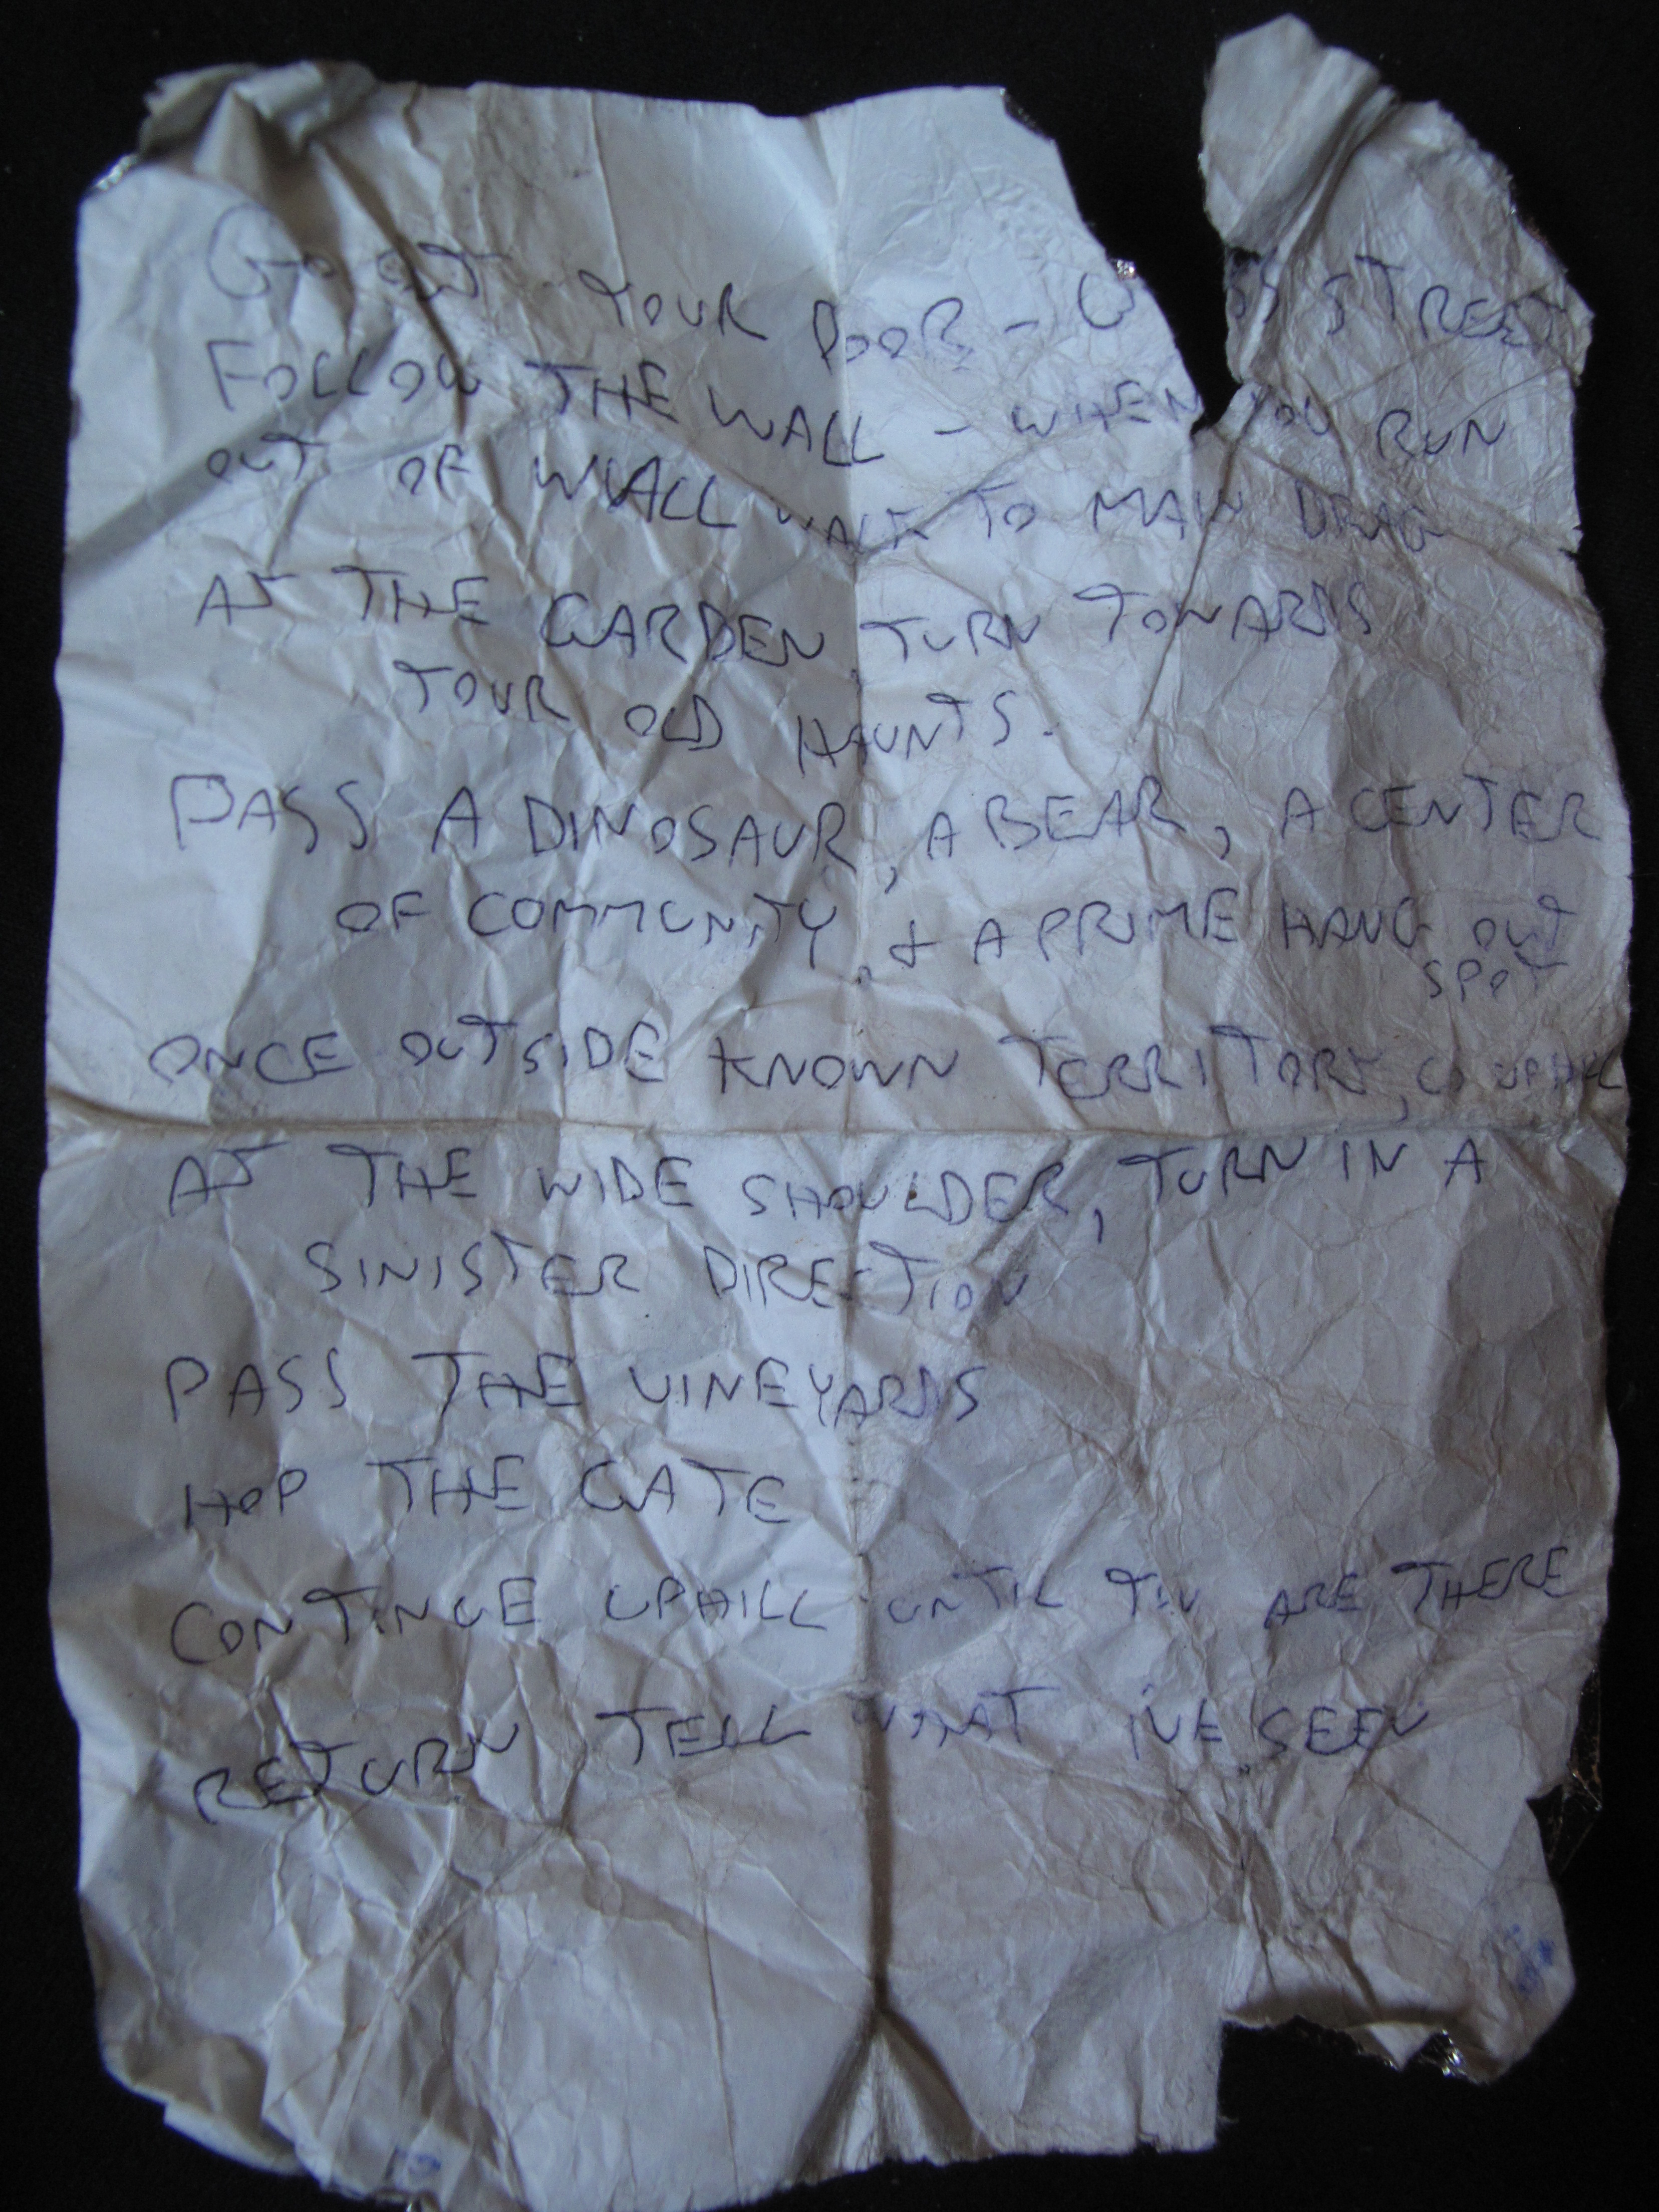 GO OUT YOUR DOOR - C OSS STREET
FOLLOW THE WALL - WHEN YOU RUN
OUT OF WALL WALK TO MAIN DRAG
AT THE GARDEN TURN TOWARDS
YOUR OLD HAUNTS.
PASS A DINOSAUR, A BEAR, A CENTER
OF COMMUNITY, & A PRIME HANG OUT
SPOT
ONCE OUTSIDE KNOWN TERRITORY, GO UPHILL
AT THE WIDE SHOULDER, TURN IN A
SINISTER DIRECTION
PASS THE VINEYARDS
HOP THE GATE
CONTINUE UPHILL UNTIL YOU ARE THERE
RETURN TELL WHAT I'VE SEEN